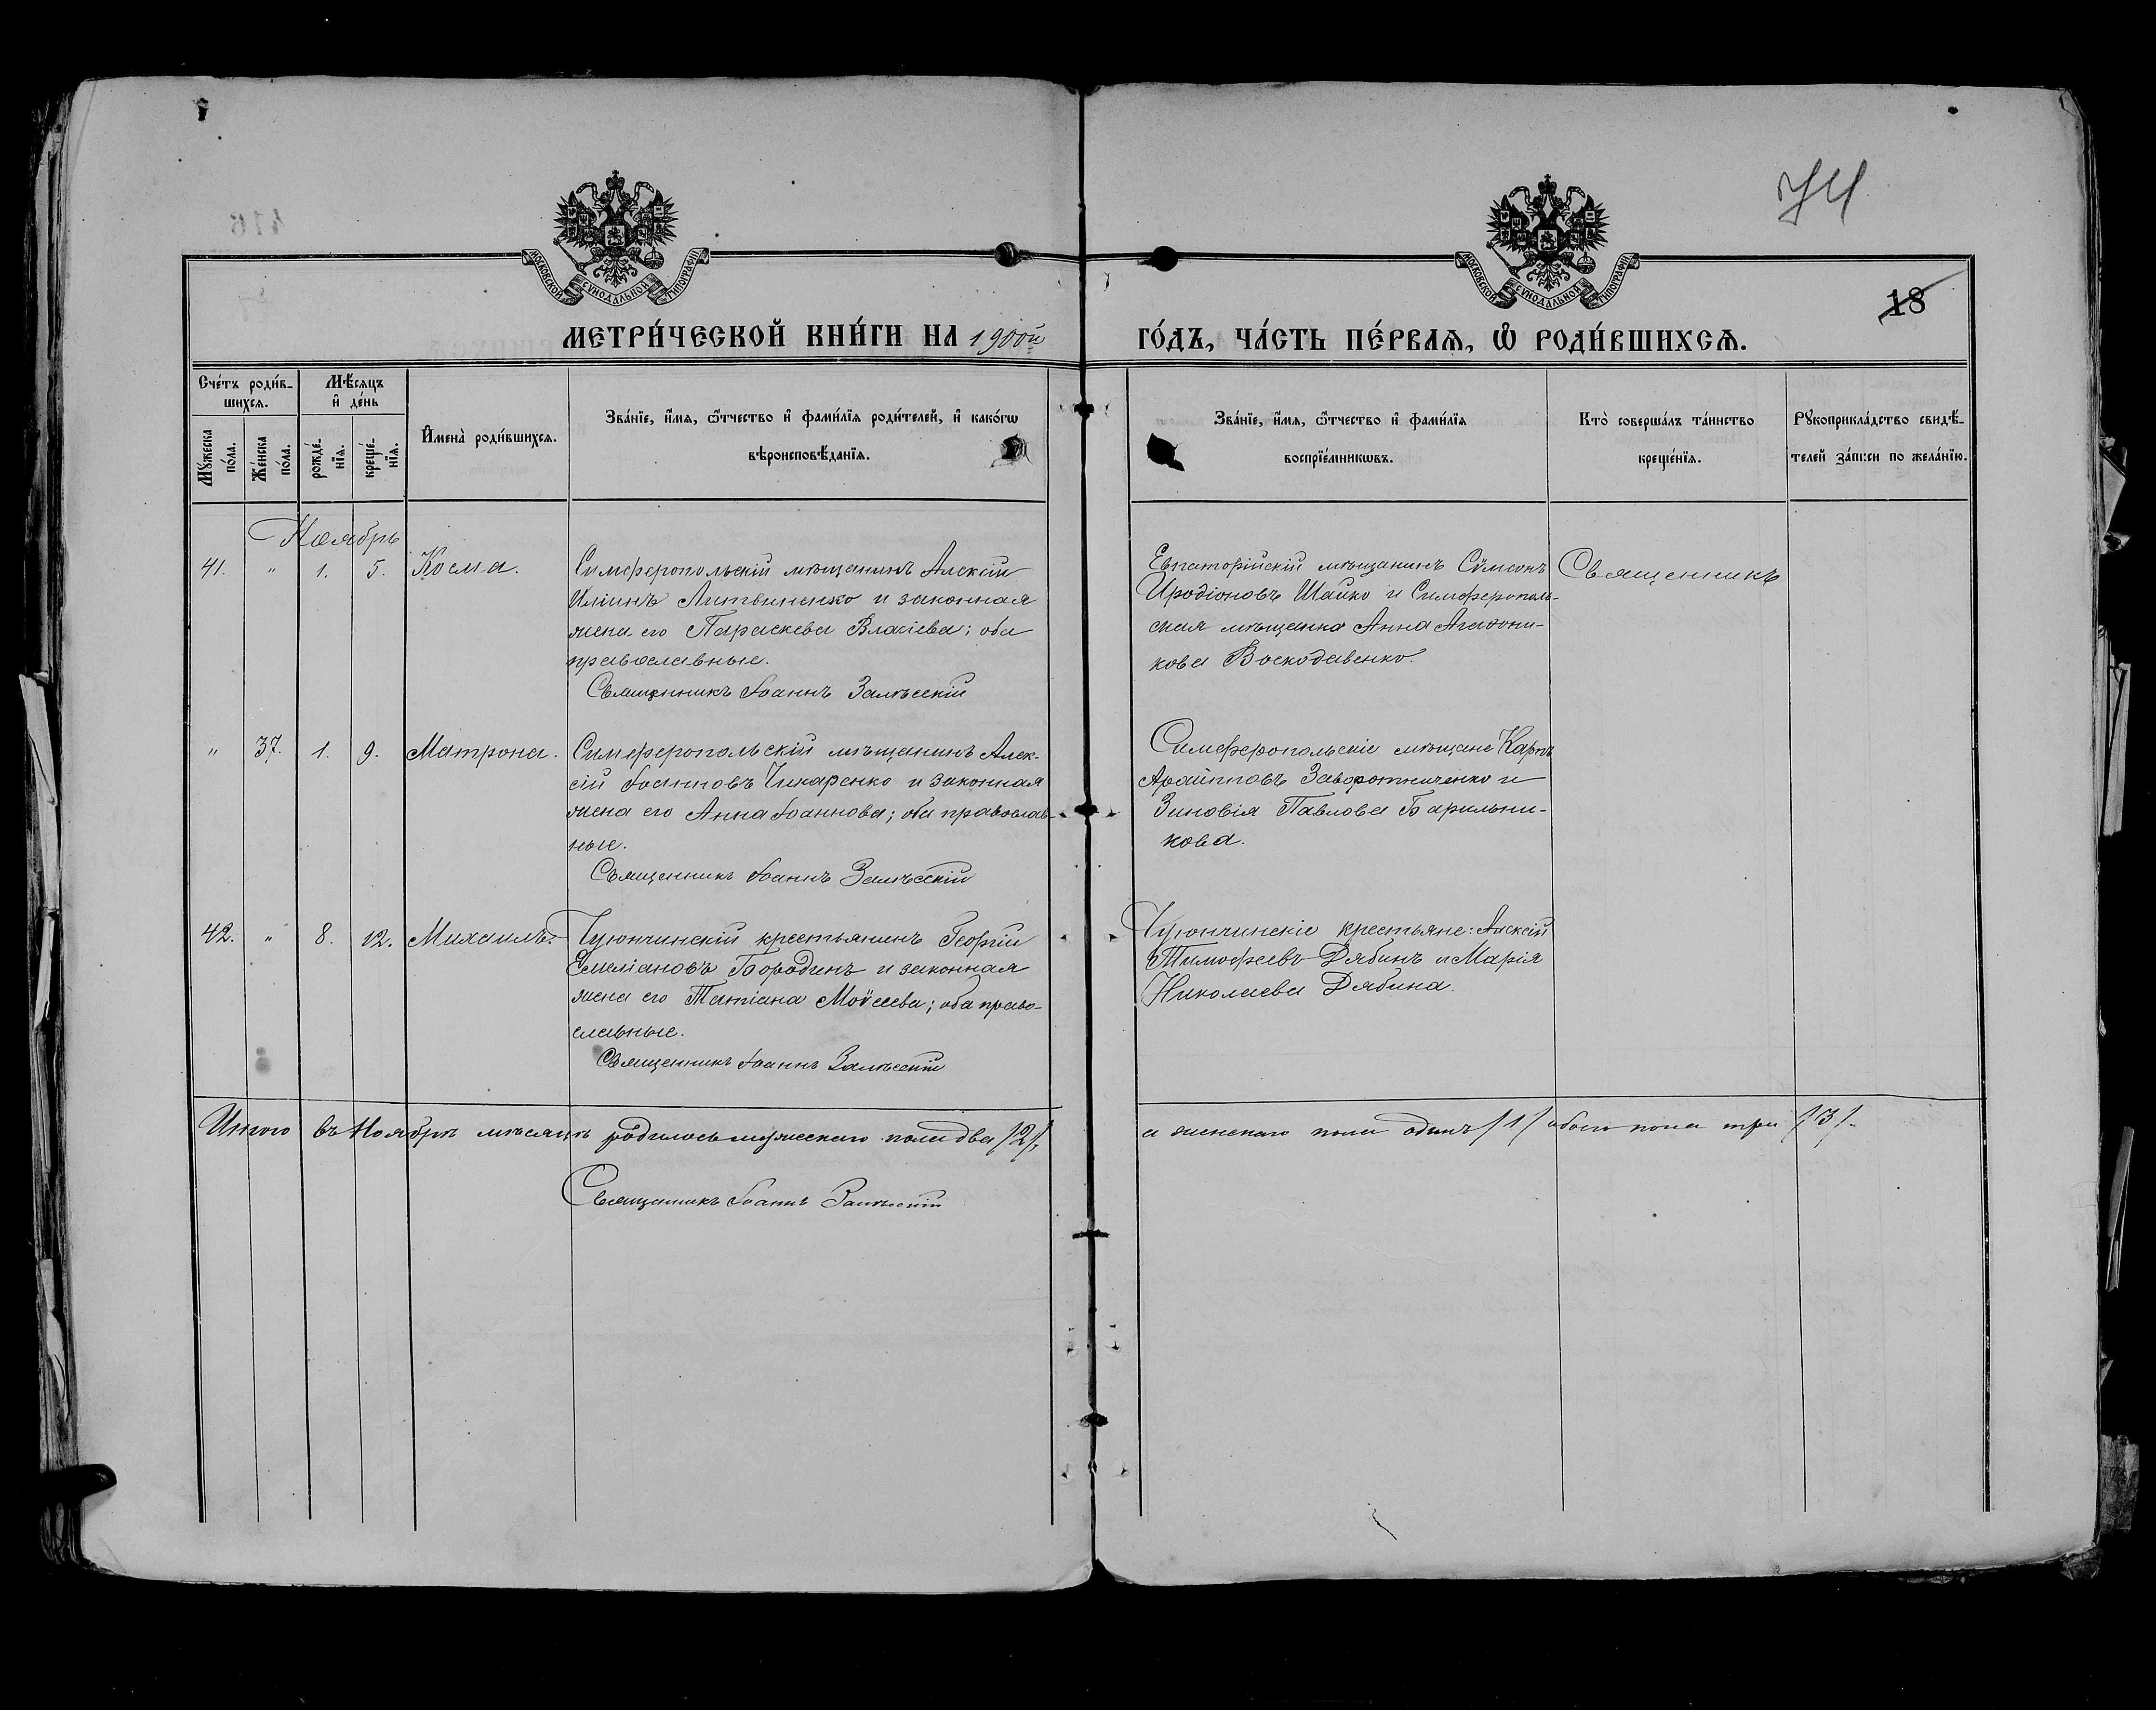 74
МОСКОВСКОЙ СѴНОДАЛЬНОЙ ТИПОГРАФІИ
МОСКОВСКОЙ СѴНОДАЛЬНОЙ ТИПОГРАФІИ
18
МЕТРИ́ЧЕСКОЙ КНИ́ГИ НА 1900й ГО́ДЪ, ЧА́СТЬ ПЕ́РВАѦ, Ѽ РОДИ́ВШИХСѦ.
Сче́тъ роди́в-
шихсѧ.
Мѣ́сѧцъ
и҆ де́нь
Мꙋ́жеска
по́ла.
Же́нска
по́ла.
рожде́-
нїѧ.
креще́-
нїѧ.
И҆мена̀ роди́вшихсѧ.
Зва́нїе, и҆́мѧ, ѻ҆́тчество и҆ фамѝлїѧ роди́телей, и҆ како́гѡ
вѣроисповѣ́данїѧ.
Зва́нїе, и҆́мѧ, ѻ҆́тчество и҆ фамѝлїѧ
воспрїе́мникѡвъ.
Кто̀ соверша́лъ та́инство
креще́нїѧ.
Рꙋкоприкла́дство свидѣ́-
телей за́писи по жела́нїю.
Ноябрь
41. " 1. 5. Косма.
Симферопольскій мѣщанинъ Алексій
Иліинъ Литвиненко и законная
жена его Параскева Власіева; оба
православные.
Священникъ Іоаннъ Залѣсскій
Евпаторійскій мѣщанинъ Сѵмеонъ
Иродіоновъ Шайко и Симферополь-
ская мѣщанка Анна Агаѳони-
кова Воскодавенко.
Священникъ
" 37. 1. 9. Матрона.
Симферопольскій мѣщанинъ Алек-
сій Іоанновъ Чикаренко и законная
жена его Анна Іоаннова; оба православ-
ные.
Священникъ Іоаннъ Залѣсскій
Симферопольскіе мѣщане Карпъ
Заворотниченко и
Зиновія Павлова Барильни-
кова.
42. " 8. 12. Михаилъ.
Чуюнчинскій крестьянинъ Георгій
Емеліановъ Бородинъ и законная
жена его Татіана Моѵсеева; оба право-
славные.
Священникъ Іоаннъ Залѣсскій
Чуюнчинскіе крестьяне: Алексій
Тимофеевъ Дябинъ и Марія
Николаева Дябина.
Итого въ Ноябрѣ мѣсяцѣ родилось мужескаго пола два /2/,
а женскаго пола одинъ /1/ обоего пола три /3/.
Священникъ Іоаннъ Залѣсскій